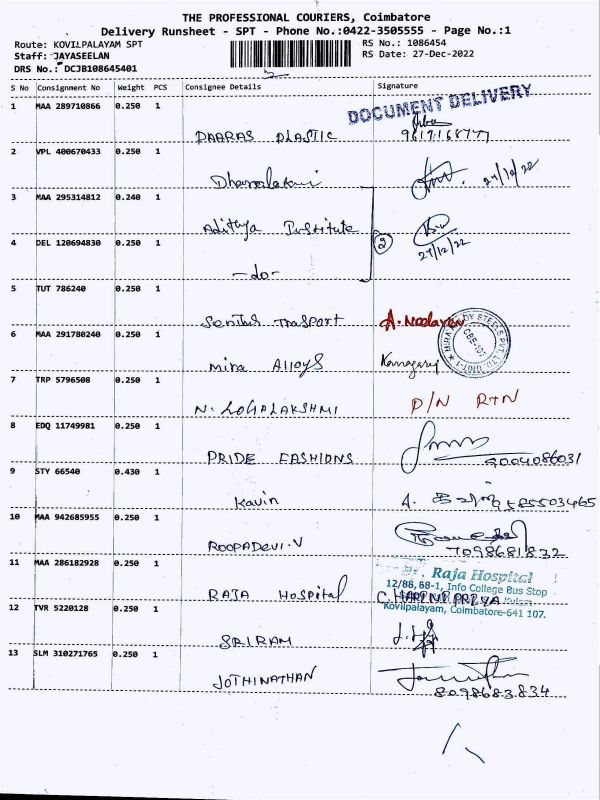 THE PROFESSIONAL COURIERS, Coimbatore
Delivery Runsheet - SPT - Phone No.:0422-3505555 - Page No.:1
Route: KOVILPALAYAM SPT RS No.: 1086454
Staff: JAYASEELAN RS Date: 27-Dec-2022
DRS No.: DCJB108645401
S No Consignment No Weight PCS Consignee Details Signature
DOCUMENT DELIVERY
1 MAA 289710866 0.250 1
PAARAS PLASTIC
2 VPL 400670433 0.250 1
3 MAA 295314812 0.240 1
Adithya Institute
2 27/12/22
4 DEL 120694830 0.250 1
-do-
5 TUT 786240 0.250 1
TRASPORT A.
6 MAA 291780240 0.250 1
Mira Alloys
7 TRP 5796508 0.250 1
N. LOGALAKSHMI D/N RTN
8 EDQ 11749981 0.250 1
PRIDE FASHIONS 9004086031
9 STY 66540 0.430 1
Kavin A. 9585503465
10 MAA 942685955 0.250 1
ROOPADEVI.V 7098681832
11 MAA 286182928 0.250 1
Raja Hospital
12/88, 88-1, Info College Bus Stop
RAJA Hospital C.HARINI PRIYA
Kovilpalayam, Coimbatore-641 107.
12 TVR 5220128 0.250 1
SRIRAM
13 SLM 310271765 0.250 1
JOTHINATHAN
8098683834